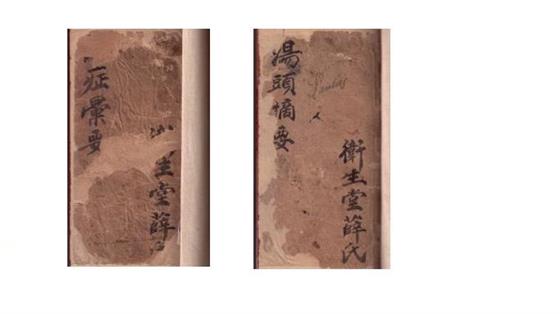 症彙要
生堂薛
湯頭摘要
衛生堂薛氏